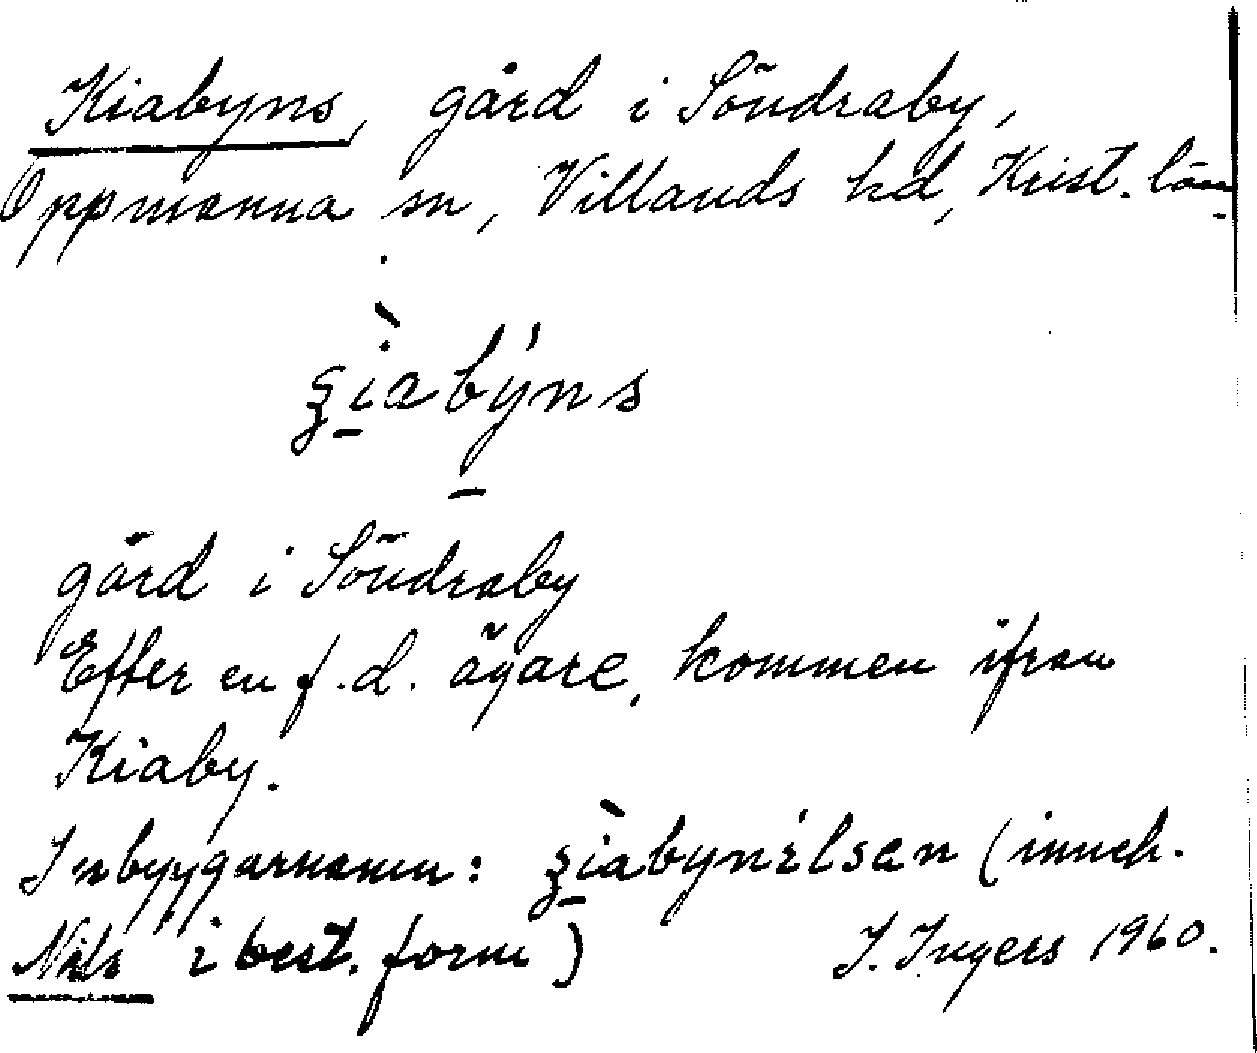 Kiabyns, gård i Söndraby,
Oppmanna sn, Villands hd, Krist. län
ʂìabýns
gård i Söndraby
Efter en f.d. ägare, kommen ifrån
Kiaby.
Inbyggarnamn: ʂìabynílsen (inneh.
Nils i best. form) I. Ingers 1960.